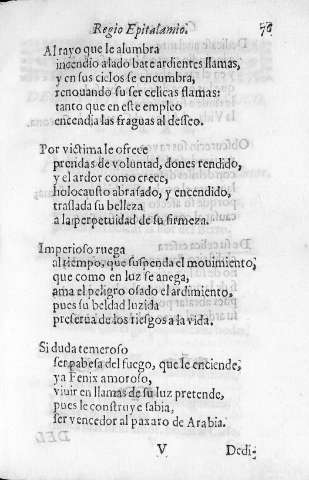 Regio Epitalamio. 76
Al rayo que le alumbra
incendio alado bate ardientes llamas,
y en sus ciclos se encumbra,
renouando su ser celicas flamas:
tanto que en este empleo
encendia las fraguas al desseo.
Por victima le ofrece
prendas de voluntad, dones rendido,
y el ardor como crece,
holocausto abrasado, y encendido,
traslada su belleza
a la perpetuidad de su firmeza.
Imperioso ruega
al tiempo, que suspenda el mouimiento,
que como en luz se anega,
ama el peligro osado el ardimiento,
pues su beldad luzida
preserua de los riesgos a la vida.
Si duda temeroso
ser pabesa del fuego, que le enciende,
ya Fenix amoroso,
viuir en llamas de su luz pretende,
pues le construye sabia,
ser vencedor al paxaro de Arabia.
V Dedi-